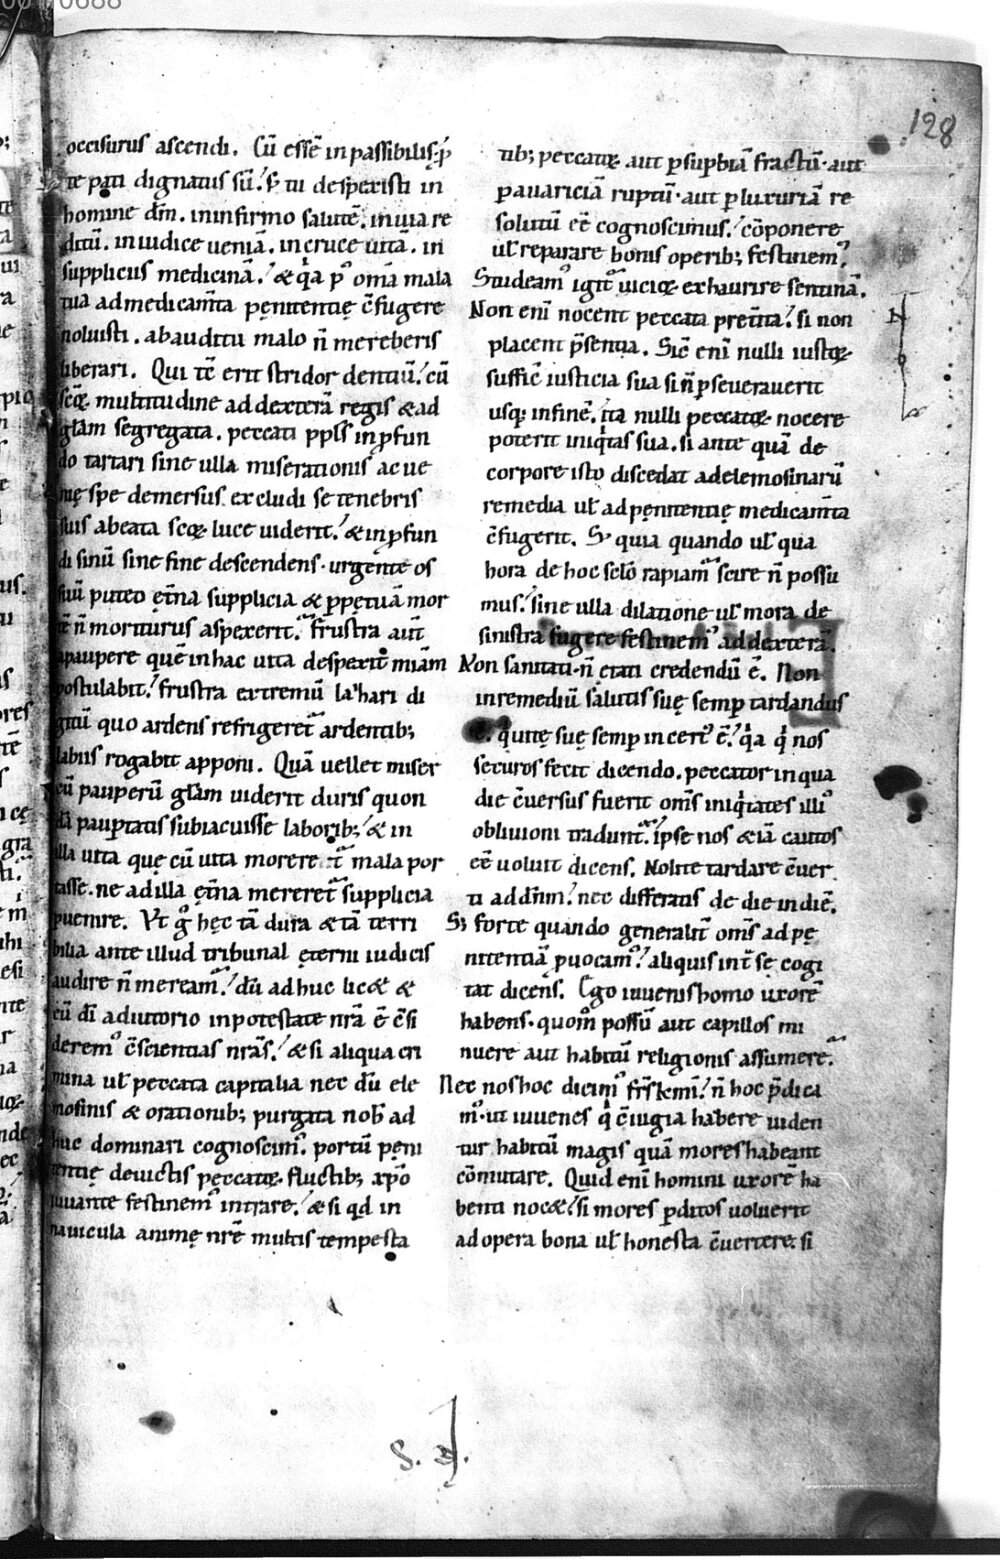 128
occisurus ascendi. Cū essē inpassibilis; ꝓ
te pati dignatus sū. S; tu desperisti in
homine dm̄. ininfirmo salutē. inuia re
ditū. iniudice ueniā. incruce uita. in
suppliciis medicinā. & q̇a p̄ om̄a mala
tua admedicam̄ta penitentię c̄fugere
noluisti. abauditu malo n̄ mereberis
liberari. Qui tē erit stridor dentiū. cū
scōꝝ multitudine addexterā regis & ad
glām segregata. peccati pplſ inꝓfun
do tartari sine ulla miserationis ac ue
nię spe demersus. excludi se tenebris
suis abeata scōꝝ luce uiderit. & inꝓfun
di sinū sine fine descendens. urgente os
suū puteo ęt̄na supplicia & ꝑpetuā mor
tē n̄ moriturus aspexerit. frustra aut̄
apaupere quē inhac uita despexit miām
postulabit. frustra extremū lazari di
gitū quo ardens refrigeret̄ ardentib;
labiis rogabit apponi. Quā uellet miser
cū pauperū glām uiderit duris quon
dā pauꝑtatis subiacuisse laborib; & in
illa uita quę cū uita morere t̄ mala por
tasse. ne adilla ęt̄na mereret̄ supplicia
puenire. Vt ḡ hęc tā dura & tā terri
bilia ante illud tribunal ęterni iudicis
audire n̄ meream̄. dū adhuc lic& &
cū dī adiutorio inpotestate nrā ē c̄si
derem᷒ c̄scientias nrās. & si aliqua cri
mina ul̄ peccata capitalia nec dū ele
mosinis & orationib; purgata nob̄ ad
huc dominari cognoscim᷒. portū peni
tentię deuictis peccatoꝝ fluctib; xp̄o
iuuante festinem᷒ intrare. & si qd in
nauicula animę nrē multis tempesta
tib; peccatoꝝ aut ꝑsupbiā fractū. aut
ꝑauariciā ruptū. aut ꝑluxuriā re
solutū eē cognoscimus. cōponere
ul̄ reparare bonis operib; festinem᷒.
Studeam᷒ igit̄ uicioꝝ exhaurire sentinā.
Non enī nocent peccata pret̄ita. si non
placent p̄sentia. Sic̄ enī nulli iustoꝝ
suffic̄ iusticia sua si n̄ ꝑseuerauerit
usq; infinē. ita nulli peccatoꝝ nocere
poterit iniq̇tas sua. si ante quā de
corpore isto discedat adelemosinarū
remedia ul̄ adpęnitentię medicam̄ta
c̄fugerit. S; quia quando ul̄ qua
hora de hoc sclō rapiam̄ scire n̄ possu
mus. sine ulla dilatione ul̄ mora de
sinistra fugere festinem᷒ addexterā.
Non sanitati. n̄ ętati credendū ē. Non
inremediū salutis suę semꝑ tardandus
ē. q̇uitę suę semꝑ incert᷒ ē. q̇a q̇ nos
securos fecit dicendo. peccator inqua
die c̄uersus fuerit om̄s iniq̇tates illi᷒
obliuioni tradunt̄. ipse nos &iā cautos
eē uoluit dicens. Nolite tardare c̄uer
ti addn̄m. nec differatis de die indiē.
S; forte quando generalit̄ om̄s adpę
nitentiā ꝓuocam᷒. aliquis int̄ sę cogi
tat dicens. Ego iuuenis homo uxorē
habens. quom̄ possū aut capillos mi
nuere aut habitū religionis assumere.
Nec nos hoc dicim᷒ frs̄ km̄i. n̄ hoc p̄dica
m᷒. ut iuuenes q̇ c̄iugia habere uiden
tur habitū magis quā mores habeant
cōmutare. Quid enī homini uxorē ha
benti noc&. si mores ꝑditos uoluerit
adopera bona ul̄ honesta c̄uertere. si